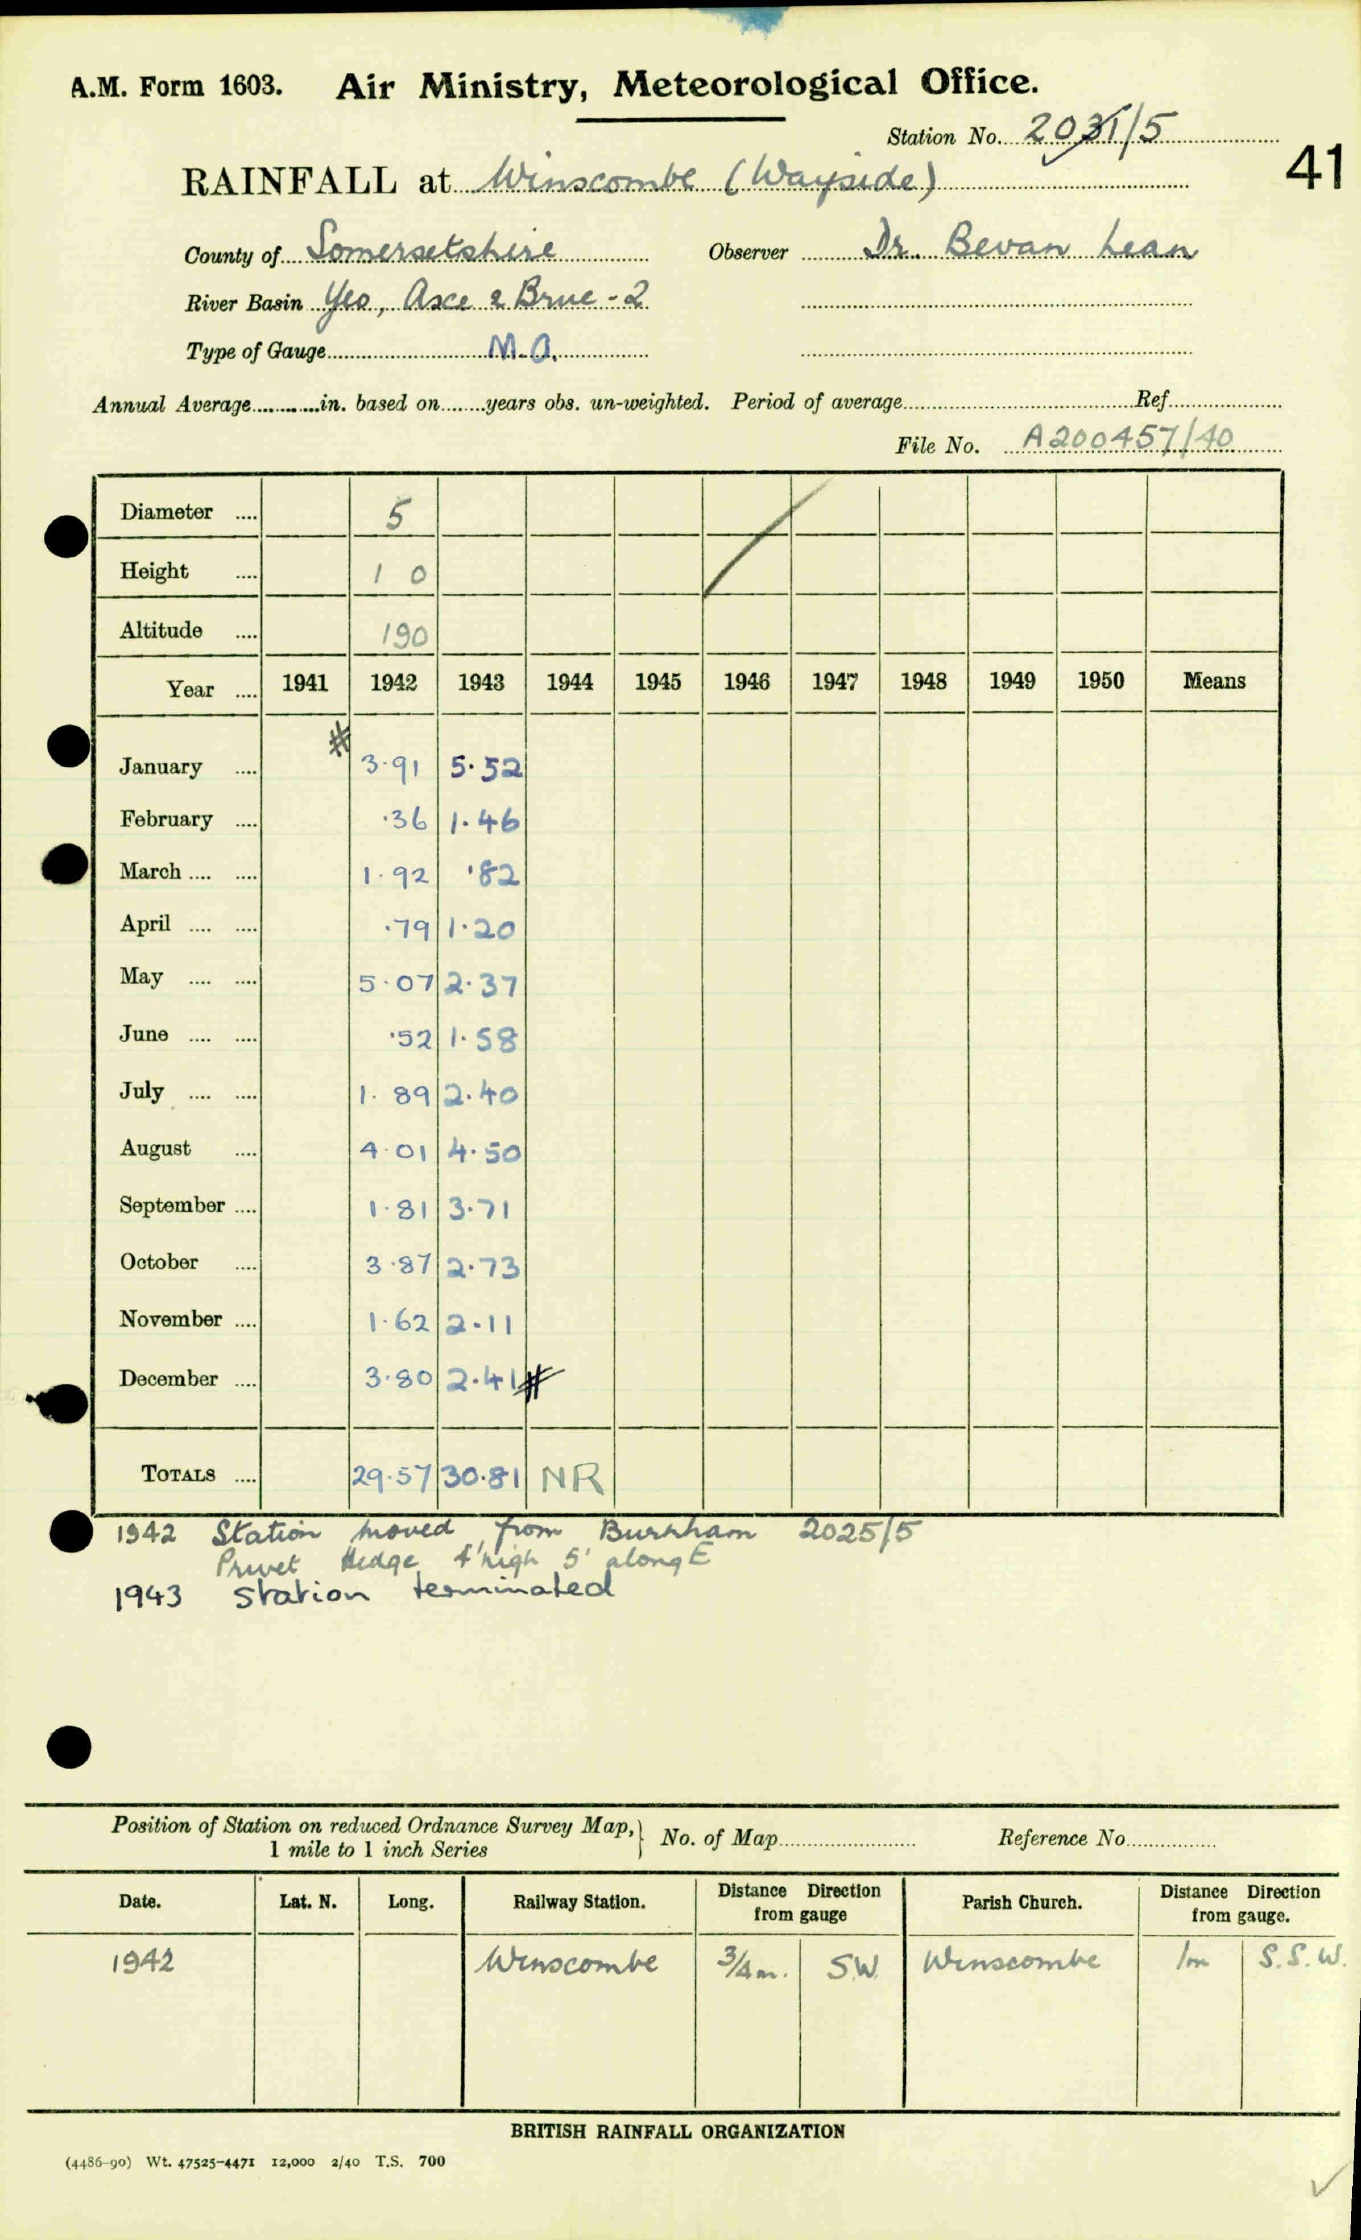 A.M. Form 1603. Air Ministry, Meteorological Office.
Station No. 2031/5
41
RAINFALL at Winscombe (Wayside)
County of Somersetshire Observer Dr. Bevan Lean
River Basin Yeo, Axe & Brue - 2
Type of Gauge M.O.
Annual Average in. based on years obs. un-weighted. Period of average Ref.
File No. A200457/40
Diameter 5
Height 1 0
Altitude 190
Year 1941 1942 1943 1944 1945 1946 1947 1948 1949 1950 Means
#
January 3.91 5.52
February .36 1.46
March 1.92 .82
April .79 1.20
May 5.07 2.37
June .52 1.58
July 1.89 2.40
August 4.01 4.50
September 1.81 3.71
October 3.87 2.73
November 1.62 2.11
December 3.80 2.41 #
TOTALS 29.57 30.81 NR
1942 Station moved from Burnham 2025/5
Privet Hedge 4' high 5' along E
1943 Station terminated
Position of Station on reduced Ordnance Survey Map, } No. of Map Reference No.
1 mile to 1 inch Series
Date. Lat. N. Long. Railway Station. Distance Direction from gauge Parish Church. Distance Direction from gauge.
1942 Winscombe 3/4 m. S.W. Winscombe 1m S.S.W.
BRITISH RAINFALL ORGANIZATION
(4486-90) Wt. 47525-4471 12,000 2/40 T.S. 700